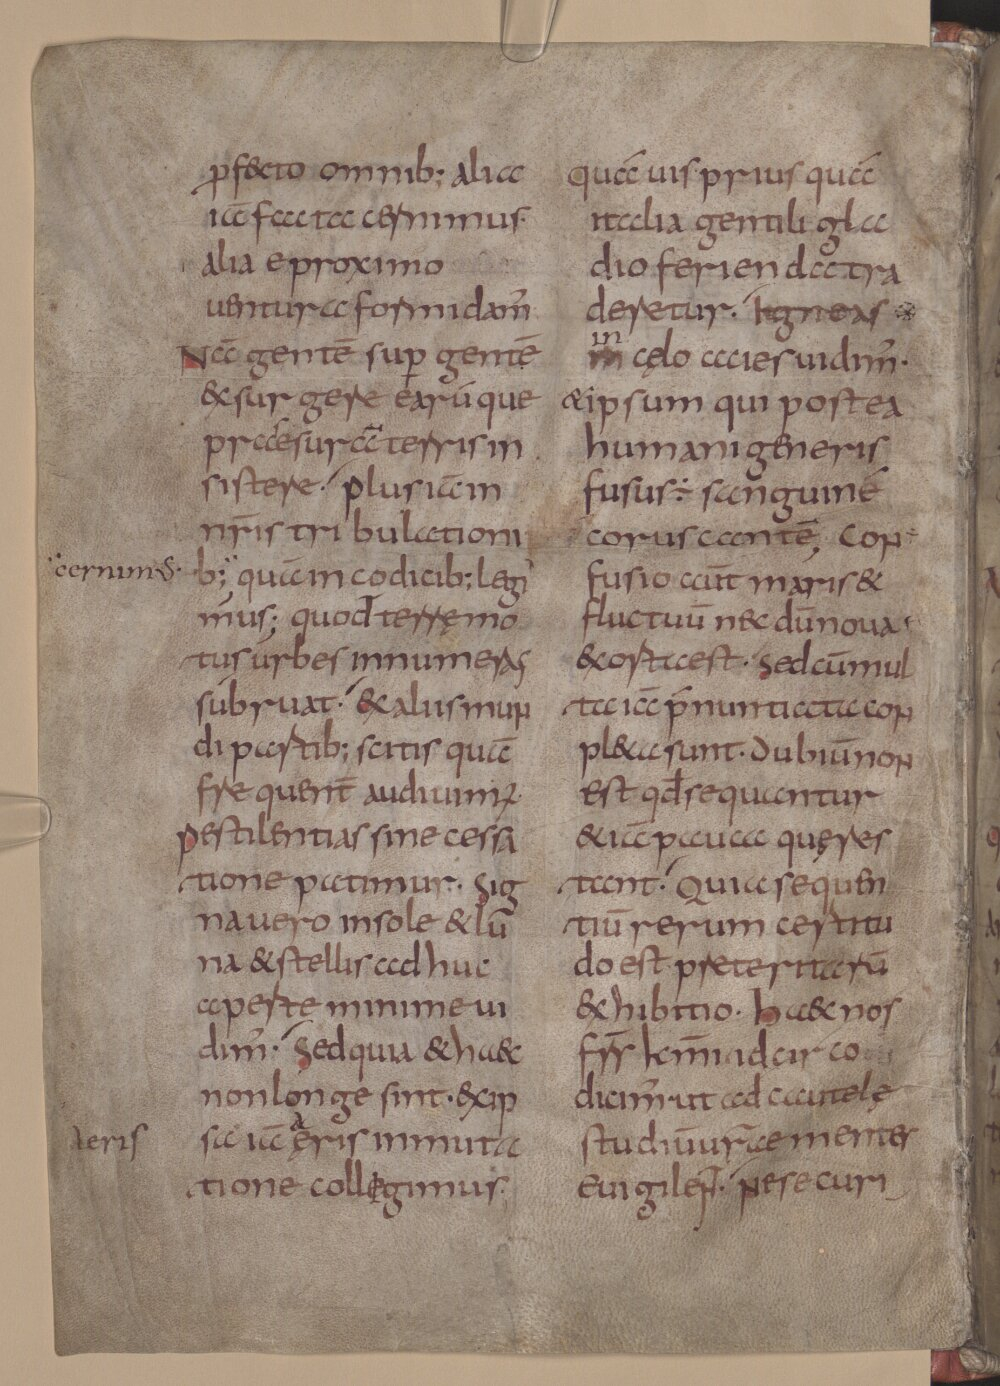 ꝓfecto omnib; alia
iā facta cernimus.
alia e proximo
uentura formidam̄
Nā gentē suꝑ gentē
& surgere earūque
p̄ssurā terris in
sistere. plus iā in
nr̄is tribulationi
"cernim;
b; quā in codicib; legi
mus; quod terrę mo
tus urbes innumeras
subruat. & aliis mun
di partib; scitis quā
frequent̄ audiuim̄
Pestilentias sine cessa
tione patimur. Sig
na uero in sole & lu
na & stellis adhuc
aperte minime ui
dim̄. Sed quia & hæc
non longe sint. & ip
aeris
sa iā aeris inmuta
tione collegimus.
quāuis prius quā
italia gentili gla
dio ferienda tra
deretur. igneas
in
in cęlo acies uidim̄.
& ipsum qui postea
humani generis
fusus: sanguinē
coruscantē, Con
fusio aūt maris &
fluctuū nec dū noua
& orta est. Sed cū mul
ta iā p̄nuntiata con
pleta sunt. Dubiū non
est qd̄ sequantur
& iā pauca quę res
tant. Quia sequen
tiū rerum certitu
do est preteritarū
exhibitio. Haec nos
fr̄r km̄i idcirco
dicim̄ ut ad cautelę
studiū ur̄ae mentes
euigilent. Ne securi